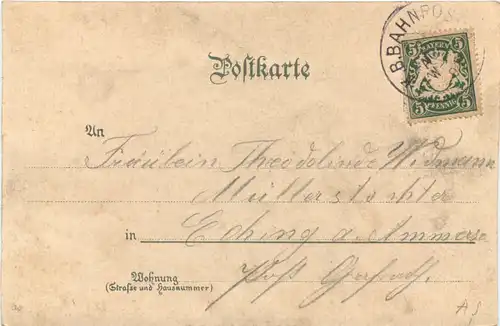 B. BAHNPOS
BAYERN
5 5
5 PFENNIG 5
Postkarte
An
Fräulein Theodolinde Widmann
Müllerstochter
in Eching a. Ammersee
Wohnung
(Straße und Hausnummer)
Post